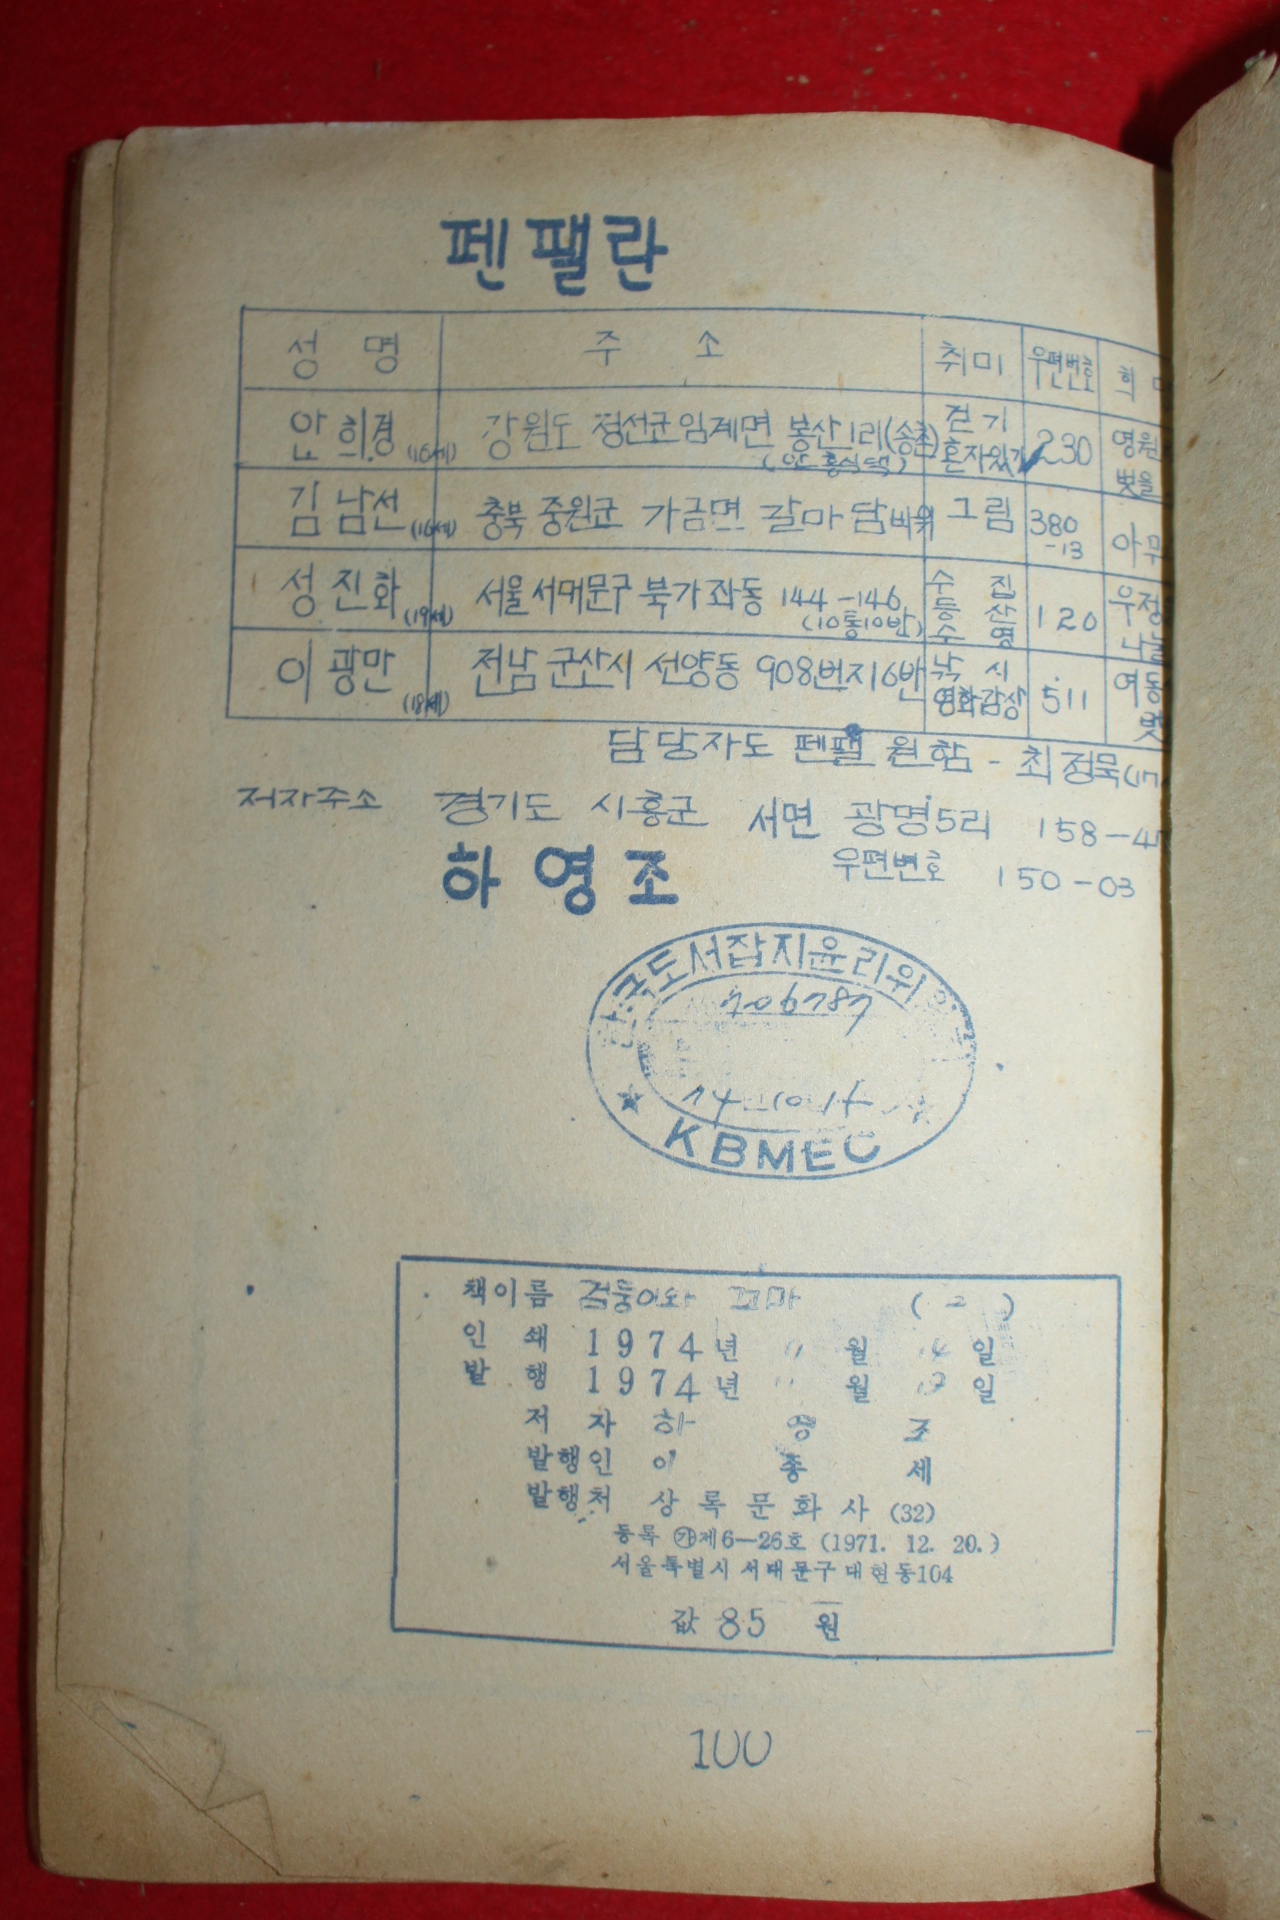 펜팰란
성 명 주 소 취미 우편번호 희
안희경(16세) 강원도 정선군임계면 봉산1리(송촌) 걷기 230 영원
(안흥식댁) 혼자있기 벗을
김남선(16세) 충북 중원군 가금면 갈마담바위 그림 380-13 아무
성진화(19세) 서울서대문구 북가좌동 144-146 수집 120 우정
(10통10반) 등산 나눌
수영
이광만(18세) 전남 군산시 선양동 908번지6반 낚시 511 여동
영화감상 벗
담당자도 펜팰 원함 - 최정묵(17
저자주소 경기도 시흥군 서면 광명5리 158-4
하영조 우편번호 150-03
한국도서잡지윤리위원
706787
74 10 1
★ ★
KBMEC
책이름 검둥이와 꼬마 (2)
인 쇄 1974년 11월 14일
발 행 1974년 11월 일
저 자 하 영 조
발행인 이 종 세
발행처 상록문화사 (32)
등록 ㉮제6—26호 (1971. 12. 20.)
서울특별시 서대문구 대현동104
값 85 원
100